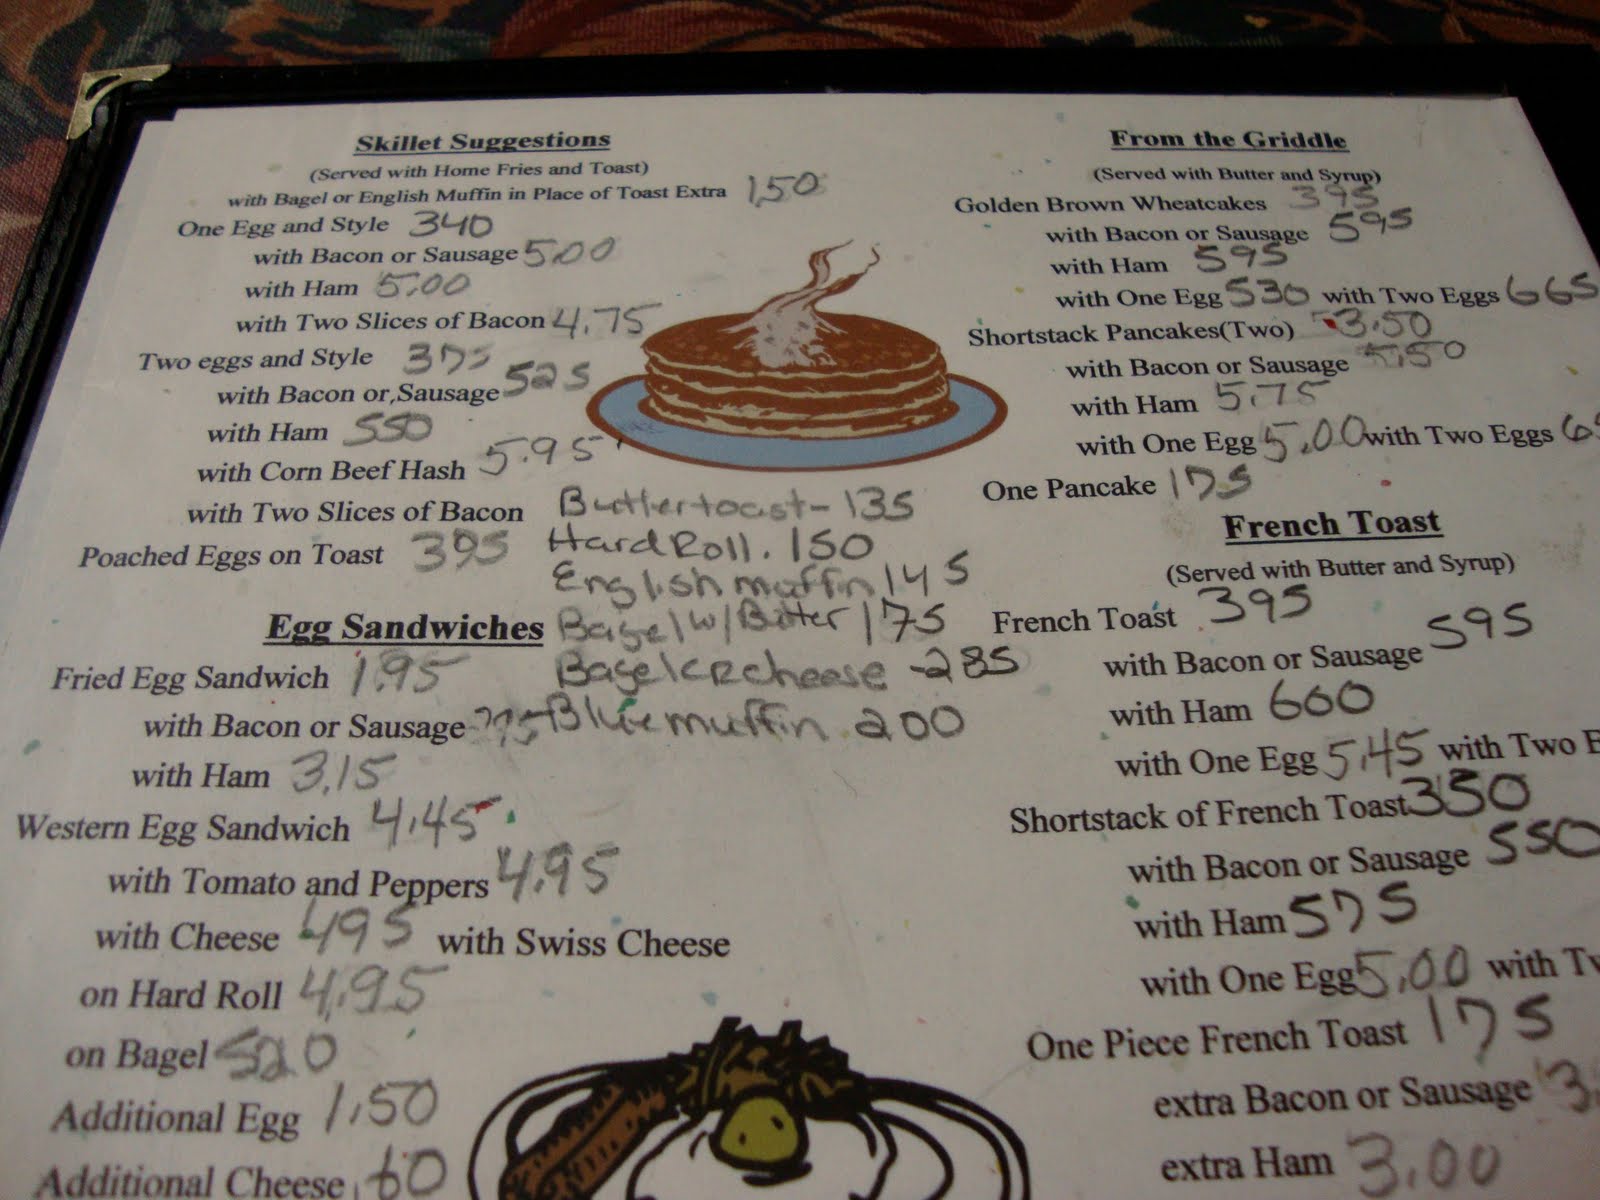 Skillet Suggestions
(Served with Home Fries and Toast)
with Bagel or English Muffin in Place of Toast Extra 1,50
One Egg and Style 340
with Bacon or Sausage 5.00
with Ham 5.00
with Two Slices of Bacon 4.75
Two eggs and Style 375
with Bacon or,Sausage 525
with Ham 550
with Corn Beef Hash 5.95
with Two Slices of Bacon
Poached Eggs on Toast 395
Buttertoast- 135
Hard Roll. 150
English muffin 145
Bagel w/Butter 175
Bagel crcheese -285
Blue muffin 200
Egg Sandwiches
Fried Egg Sandwich 1.95
with Bacon or Sausage
with Ham 3.15
Western Egg Sandwich 4.45
with Tomato and Peppers 4.95
with Cheese 495 with Swiss Cheese
on Hard Roll 4.95
on Bagel 520
Additional Egg 1.50
Additional Cheese .60
From the Griddle
(Served with Butter and Syrup)
Golden Brown Wheatcakes 395
with Bacon or Sausage 595
with Ham 595
with One Egg 530 with Two Eggs 665
Shortstack Pancakes(Two) 3.50
with Bacon or Sausage 5.50
with Ham 5.75
with One Egg 5.00 with Two Eggs
One Pancake 175
French Toast
(Served with Butter and Syrup)
French Toast 395
with Bacon or Sausage 595
with Ham 600
with One Egg 5.45 with Two E
Shortstack of French Toast 350
with Bacon or Sausage 550
with Ham 575
with One Egg 5.00 with Tw
One Piece French Toast 175
extra Bacon or Sausage 3.
extra Ham 3.00